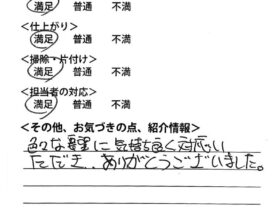 満足 普通 不満
<仕上がり>
満足 普通 不満
<掃除・片付け>
満足 普通 不満
<担当者の対応>
満足 普通 不満
<その他、お気づきの点、紹介情報>
色々な要望に気持ち良く対応い
ただき、ありがとうございました。